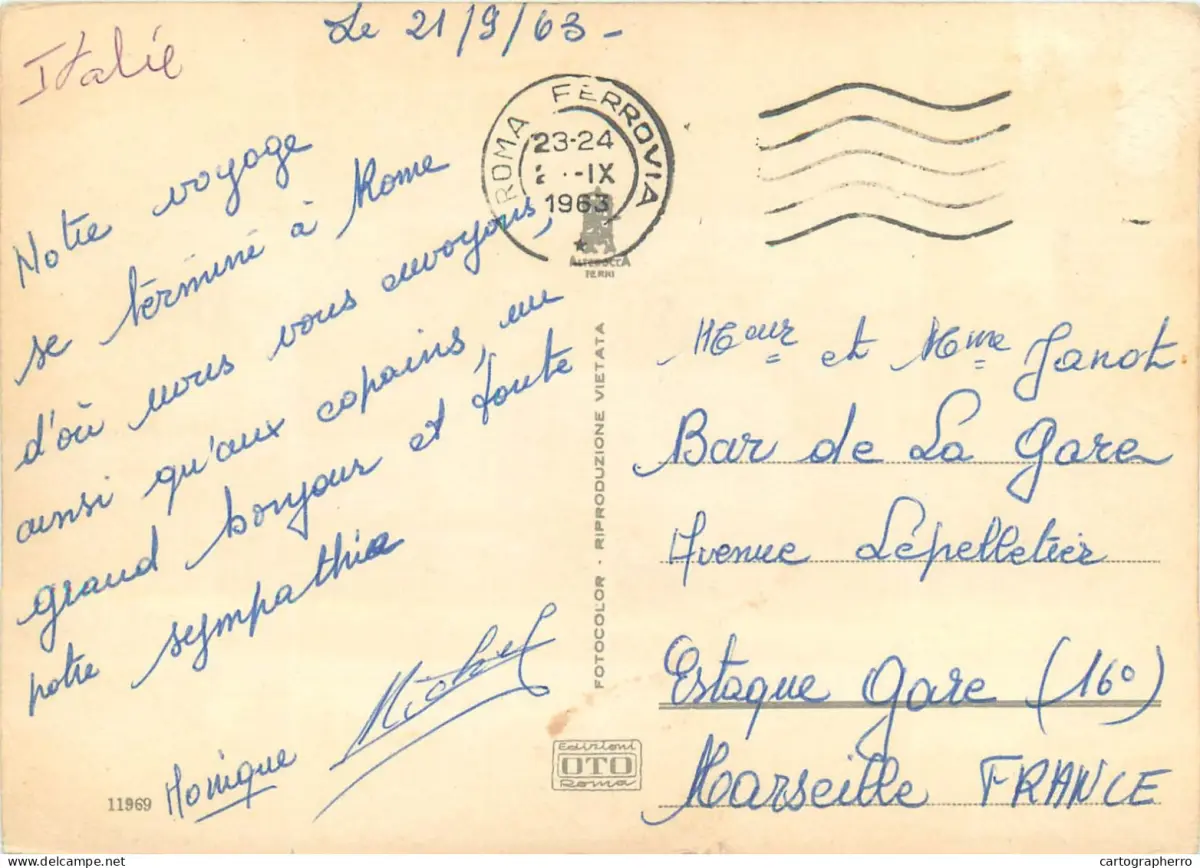 Italie
Le 21/9/63 -
Notre voyage
se termine à Rome
d'où nous vous envoyons,
ainsi qu'aux copains, un
grand bonjour et toute
notre sympathie
Monique
Michel
11969
ROMA FERROVIA
23-24
IX
1963
ALTEROCCA
TERNI
FOTOCOLOR - RIPRODUZIONE VIETATA
Edizioni
OTO
Roma
Mr et Mme Janot
Bar de La Gare
Avenue Lepelletier
Estaque Gare (16°)
Marseille FRANCE
Want More on the website
cartographerro